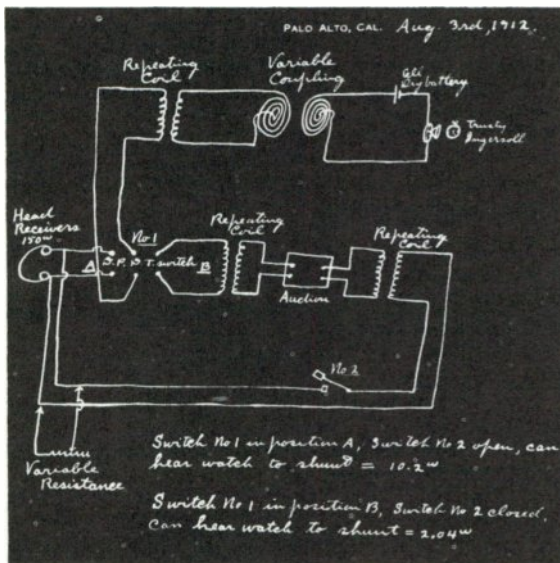 PALO ALTO, CAL. Aug. 3rd, 1912.
Repeating
Coil
Variable
Coupling
Dry battery
Trusty
Ingersoll
Head
Receivers
150ω
No 1
A
D.P.D.T. switch
B
Repeating
Coil
Audion
Repeating
Coil
No. 2
Variable
Resistance
Switch No 1 in position A, Switch No 2 open, can
hear watch to shunt = 10.2ω
Switch No 1 in position B, Switch No 2 closed,
can hear watch to shunt = 2.04ω